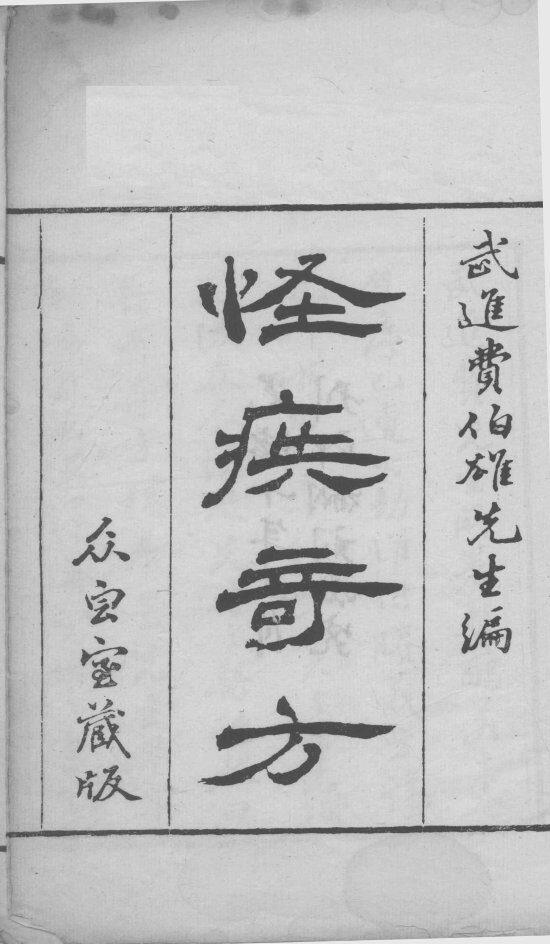 武進費伯雄先生編
怪疾奇方
室藏版